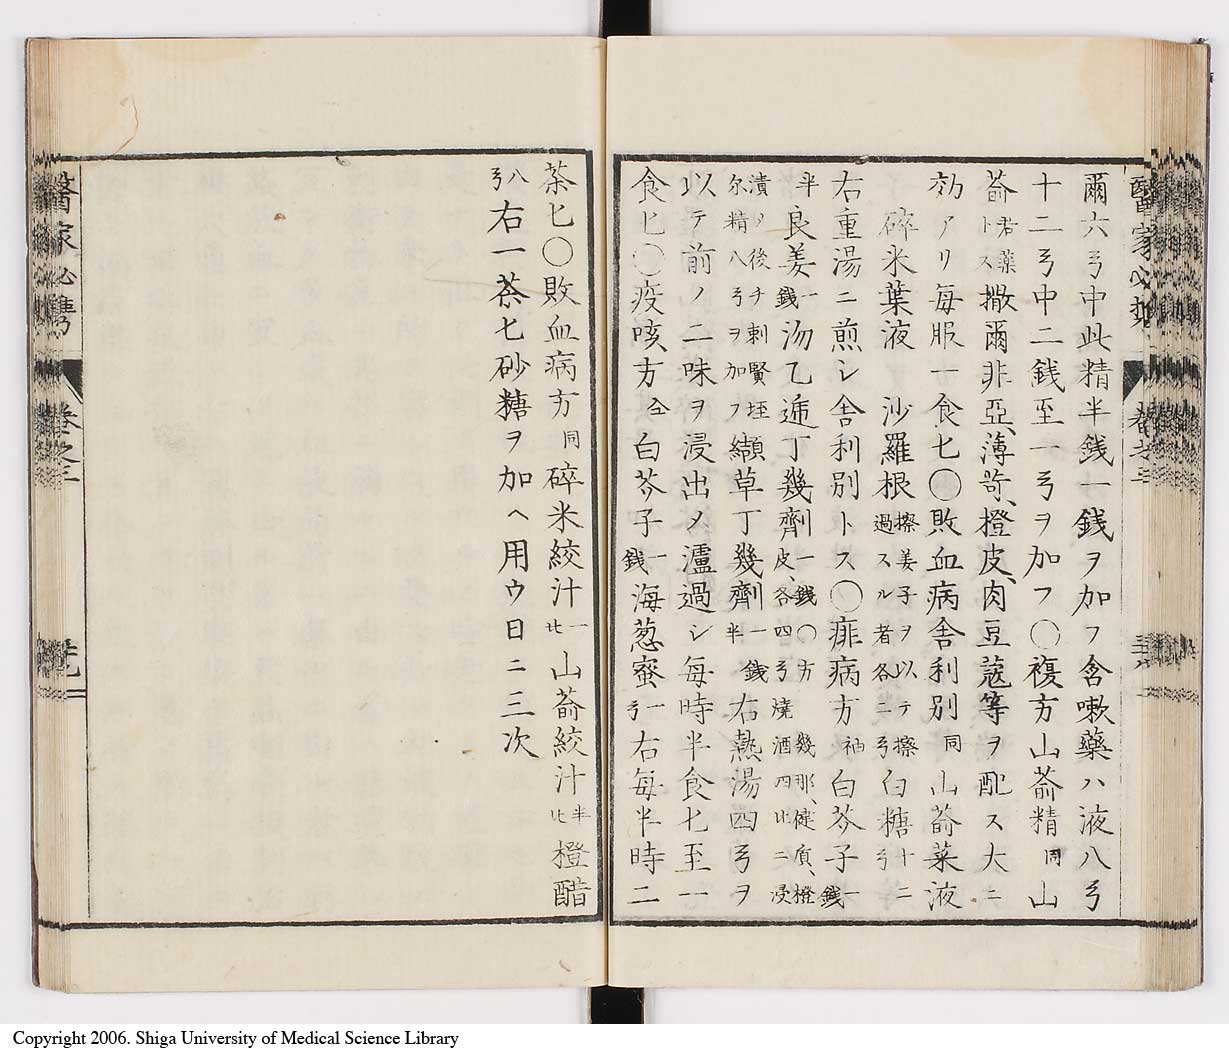 爾六弓中此精半銭一銭ヲ加フ含嗽藥ハ液八弓
十二弓中二銭至一弓ヲ加フ〇複方山萮精同山
萮君藥トス撒爾非亞、薄苛、橙皮、肉豆蔻等ヲ配ス大ニ
効アリ毎服一食匕〇敗血病舎利別同山萮菜液
碎米葉液 沙羅根擦姜子ヲ以テ擦過スル者各二弓白糖十二弓
右重湯ニ煎シ舎利別トス〇痱病方衲白芥子一銭
半良姜一銭沕乙逓丁幾劑一銭〇方幾那、健質、橙皮、各四弓燒酒四比ニ浸
漬ヲ後チ刺賢垤尔精八弓ヲ加フ纈草丁幾劑一銭半右熱湯四弓ヲ
以テ前ノ二味ヲ浸出メ瀘過シ毎時半食匕至一
食匕〇疫咳方仝白芥子一銭海葱蜜一弓右毎半時二
茶匕〇敗血病方同碎米絞汁一比山萮絞汁半比橙醋
八弓右一茶匕砂糖ヲ加ヘ用ウ日ニ三次
醫家必携
卷之三
Copyright 2006. Shiga University of Medical Science Library